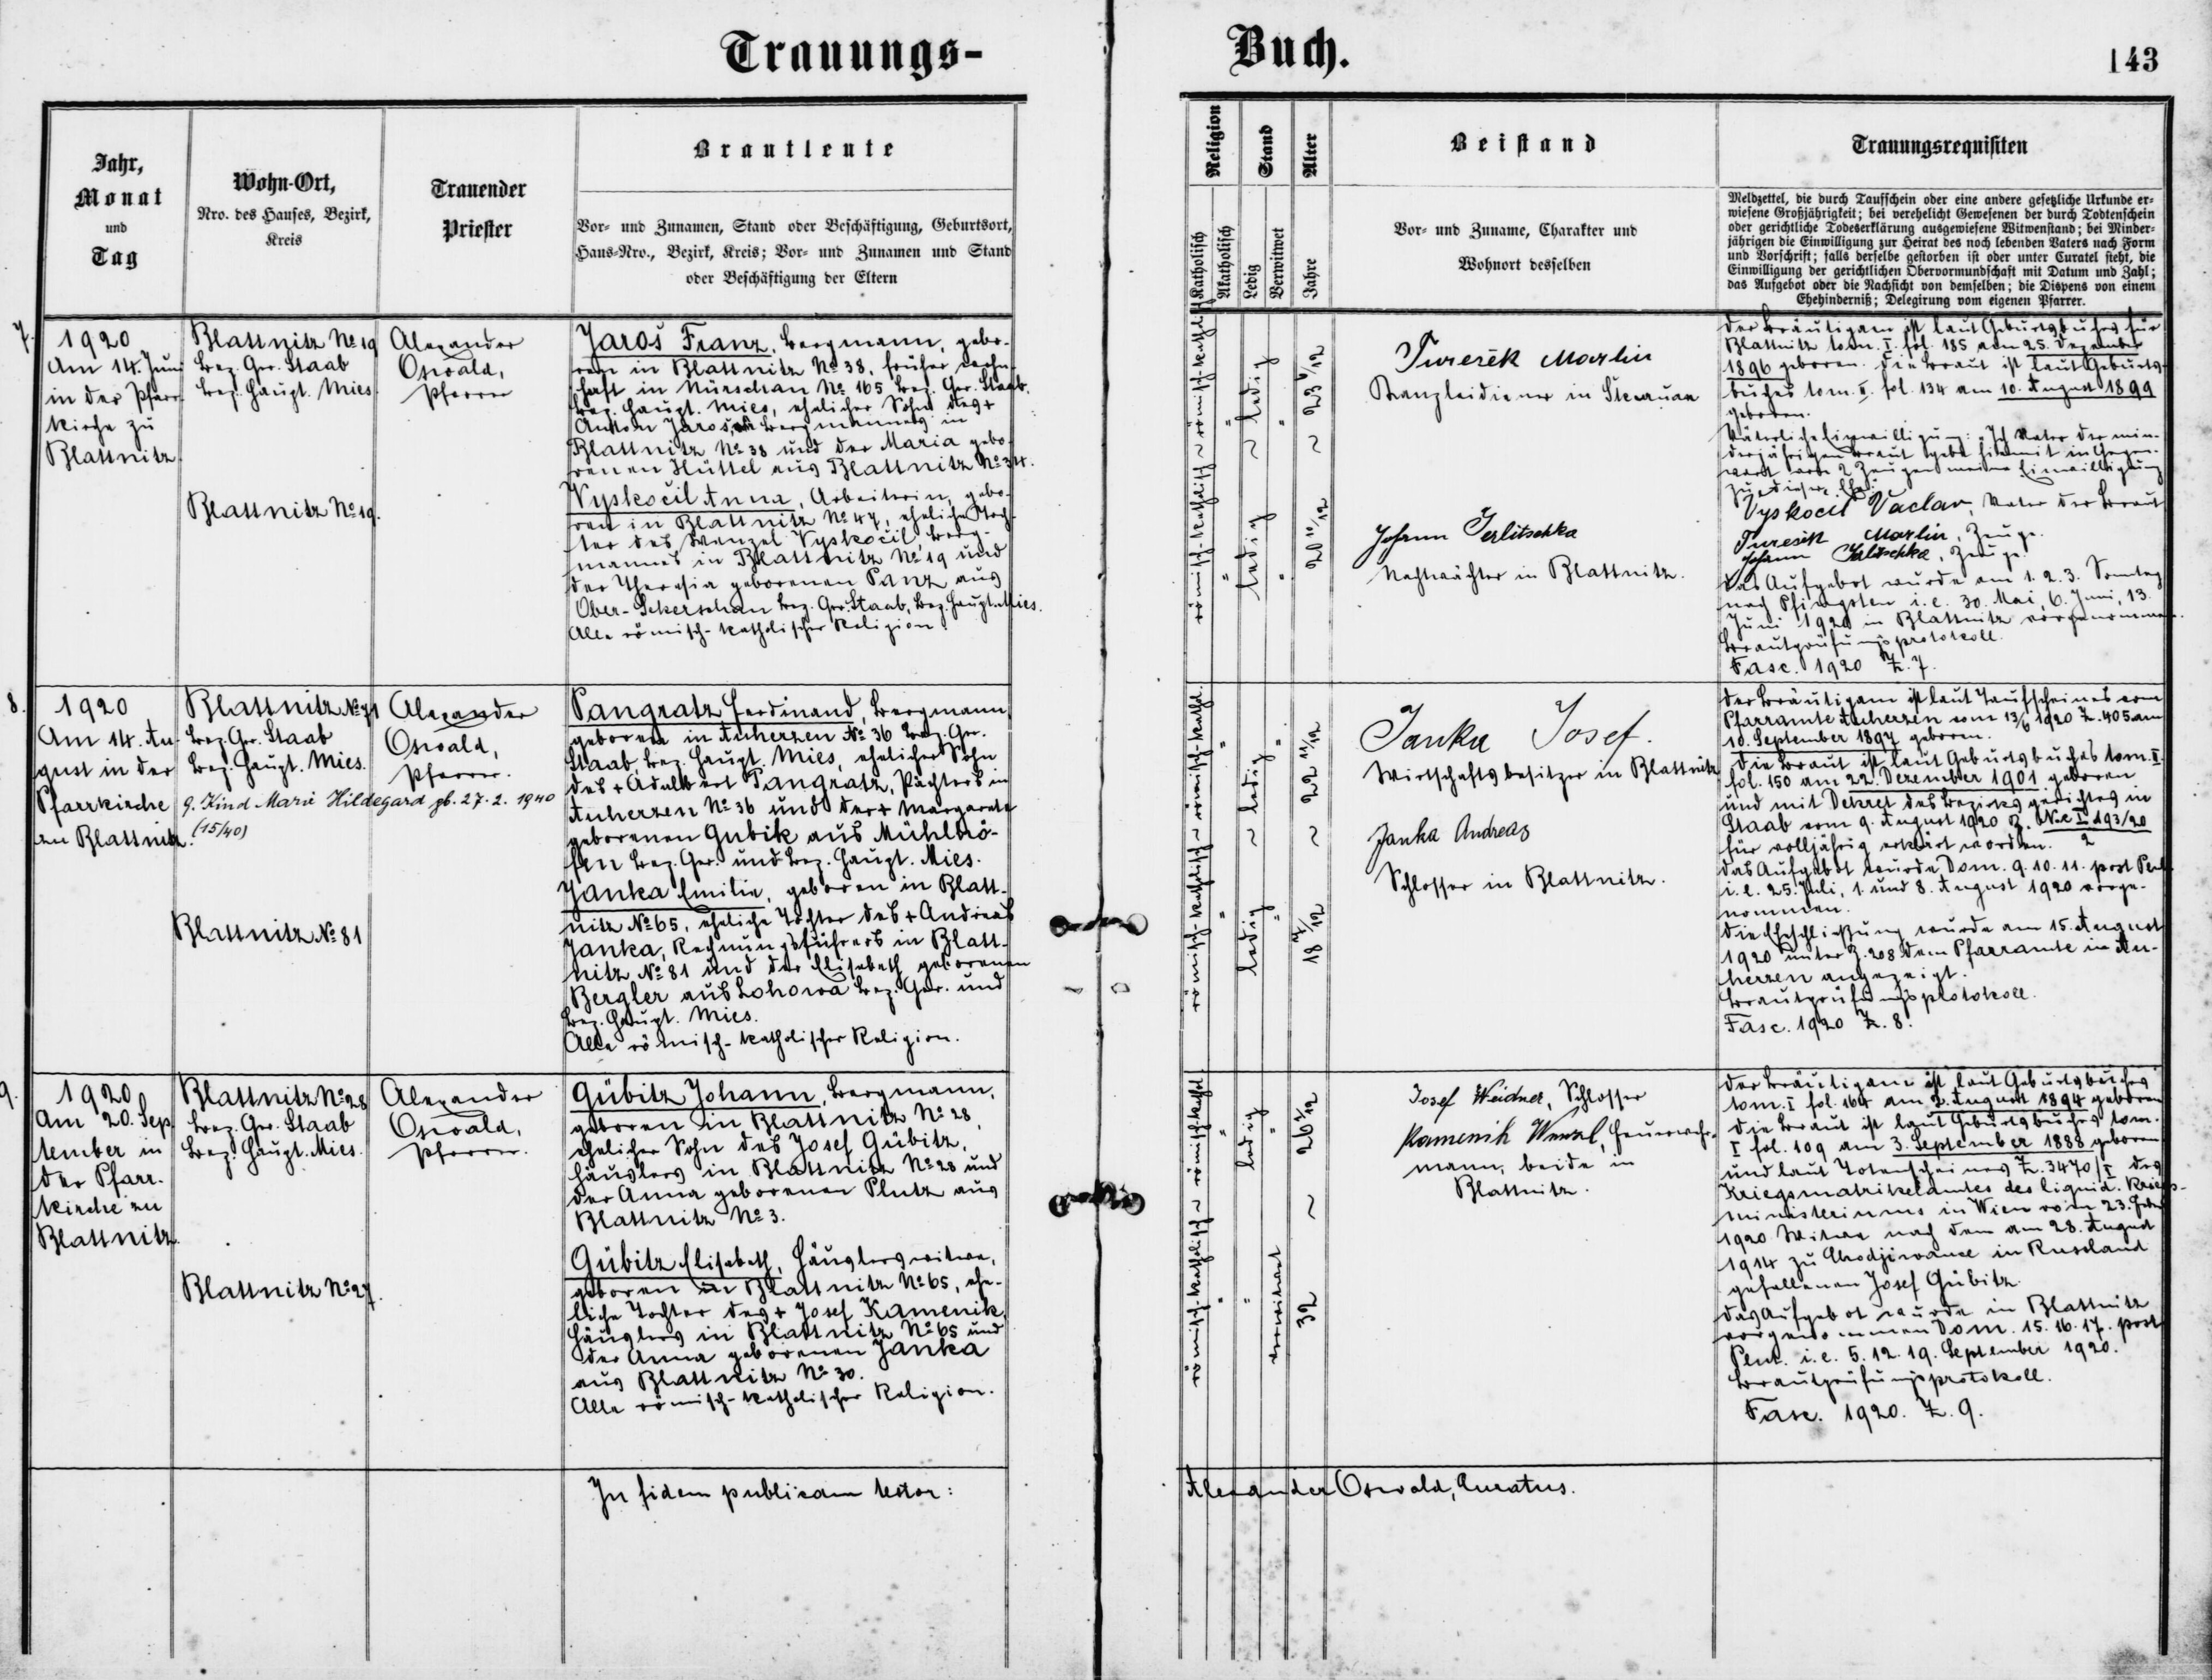 Trauungs-
Buch.
143
Jahr,
Monat
und
Tag
Wohn-Ort,
Nro. des Hauses, Bezirk,
Kreis
Trauender
Priester
Brautleute
Vor- und Zunamen, Stand oder Beschäftigung, Geburtsort,
Haus-Nro., Bezirk, Kreis; Vor- und Zunamen und Stand
oder Beschäftigung der Eltern
Religion
Katholisch
Akatholisch
Stand
Ledig
Verwitwet
Alter
Jahre
Beistand
Vor- und Zuname, Charakter und
Wohnort desselben
Trauungsrequisiten
Meldzettel, die durch Taufschein oder eine andere gesetzliche Urkunde er-
wiesene Großjährigkeit; bei verehelicht Gewesenen der durch Todtenschein
oder gerichtliche Todeserklärung ausgewiesene Witwenstand; bei Minder-
jährigen die Einwilligung zur Heirat des noch lebenden Vaters nach Form
und Vorschrift; falls derselbe gestorben ist oder unter Curatel steht, die
Einwilligung der gerichtlichen Obervormundschaft mit Datum und Zahl;
das Aufgebot oder die Nachsicht von demselben; die Dispens von einem
Ehehinderniß; Delegirung vom eigenen Pfarrer.
7.
1920
Am 14. Juni
in der Pfarr-
kirche zu
Blattnitz.
Blattnitz No 19
Bez. Ger. Staab
Bez. Haupt. Mies.
Blattnitz No 19.
Alexander
Oswald,
Pfarrer
Jaroš Franz, Bergmann, gebo-
ren in Blattnitz No 38, früher wohn-
haft in Nürschan No 165 Bez. Ger. Staab,
Bez. Haupt. Mies, ehelicher Sohn des +
Anton Jaroš, Bergmannes in
Blattnitz No 38 und der Maria gebo-
renen Hüttel aus Blattnitz No 34.
Vyskočil Anna, Arbeiterin, gebo-
ren in Blattnitz No 47, eheliche Toch-
ter des Wenzel Vyskočil, Berg-
mannes in Blattnitz No 19 und
der Theresia geborenen Panz aus
Ober-Sekerschan Bez. Ger. Staab, Bez. Haupt. Mies.
Alle römisch-katholischer Religion.
römisch-katholisch ~ römisch-katholisch
ledig ~ ledig
23 6/12
~
20 10/12
Turesek Martin
Kanzleidiener in
Johann Jerlitschka
Nachtwächter in Blattnitz.
Der Bräutigam ist laut Geburtsbuches für
Blattnitz tom. I. fol. 185 am 25. Dezember
1896 geboren. Die Braut ist laut Geburts-
buches tom. II. fol. 134 am 10. August 1899
geboren.
Väterliche Einwilligung: "Ich Vater der min-
derjährigen Braut gebe hiemit in Gegen-
wart von 2 Zeugen meine Einwilligung
zu dieser Ehe."
Vyskočil Vaclav, Vater der Braut
Turesek Martin, Zeuge.
Johann Jerlitschka, Zeuge.
Das Aufgebot wurde am 1. 2. 3. Sonntag
nach Pfingsten i. e. 30. Mai, 6. Juni, 13.
Juni 1920 in Blattnitz vorgenommen.
Brautprüfungsprotokoll.
Fasc. 1920 Z. 7.
8.
1920
Am 14. Au-
gust in der
Pfarrkirche
zu Blattnitz.
Blattnitz No 71
Bez. Ger. Staab
Bez. Haupt. Mies.
9. Kind Marie Hildegard gb. 27. 2. 1940
(15/40)
Blattnitz No 81
Alexander
Oswald,
Pfarrer.
Pangratz Ferdinand, Bergmann,
geboren in Auherzen No 36 Bez. Ger.
Staab, Bez. Haupt. Mies, ehelicher Sohn
des + Adalbert Pangratz, Pächters in
Auherzen No 36 und der + Margarete
geborenen Gubik aus Mühlhö-
fen Bez. Ger. und Bez. Haupt. Mies.
Janka Emilie, geboren in Blatt-
nitz No 65, eheliche Tochter des + Andreas
Janka, Rechnungsführers in Blatt-
nitz No 81 und der Elisabeth geborenen
Bergler aus Lohowa Bez. Ger. und
Bez. Haupt. Mies.
Alle römisch-katholischer Religion.
römisch-katholisch ~ römisch-kathol.
ledig ~ ledig
22 11/12
~
18 8/12
Janka Josef.
Wirtschaftsbesitzer in Blattnitz
Janka Andreas
Schlosser in Blattnitz.
Der Bräutigam ist laut Taufscheines vom
Pfarramte Auherzen vom 13/6 1920 Z. 405 am
10. September 1897 geboren.
Die Braut ist laut Geburtsbuches tom. II.
fol. 150 am 22. Dezember 1901 geboren
und mit Dekret des Bezirksgerichtes in
Staab vom 9. August 1920 Z. Nc I 193/20
2
für volljährig erklärt worden.
Das Aufgebot wurde Dom. 9. 10. 11. post Pent.
i. e. 25. Juli, 1. und 8. August 1920 vorge-
nommen.
Die Eheschließung wurde am 15. August
1920 unter Z. 208 dem Pfarramte in Au-
herzen angezeigt.
Brautprüfungsprotokoll.
Fasc. 1920 Z. 8.
9.
1920
Am 20. Sep-
tember in
der Pfarr-
kirche zu
Blattnitz.
Blattnitz No 28
Bez. Ger. Staab
Bez. Haupt. Mies.
Blattnitz No 27.
Alexander
Oswald,
Pfarrer.
Gübitz Johann, Bergmann,
geboren in Blattnitz No 28,
ehelicher Sohn des Josef Gübitz,
Häuslers in Blattnitz No 28 und
der Anna geborenen Plutz aus
Blattnitz No 3.
Gübitz Elisabeth, Häuslerswitwe,
geboren in Blattnitz No 65, ehe-
liche Tochter des + Josef Kamenik,
Häuslers in Blattnitz No 65 und
der Anna geborenen Janka
aus Blattnitz No 30.
Alle römisch-katholischer Religion.
römisch-katholisch ~ römisch-kathol.
ledig
verwitwet
26 1/12
~
32
Josef Weidner, Schlosser
Kamenik Wenzl, Feuerwehr-
mann, beide in
Blattnitz.
Der Bräutigam ist laut Geburtsbuches
tom. I fol. 164 am 2. August 1894 geboren
Die Braut ist laut Geburtsbuches tom.
I fol. 109 am 3. September 1888 geboren
und laut Totenscheines Z. 3470/I des
Kriegsmatrikelamtes des liquid. Kriegs-
ministeriums in Wien vom 23.
1920 Witwe nach dem am 28. August
1914 zu Chodjiwance in Russland
gefallenen Josef Gübitz.
Das Aufgebot wurde in Blattnitz
vorgenommen Dom. 15. 16. 17. post
Pent. i. e. 5. 12. 19. September 1920.
Brautprüfungsprotokoll.
Fasc. 1920. Z. 9.
In fidem publicam testor:
Alexander Oswald, Curatus.